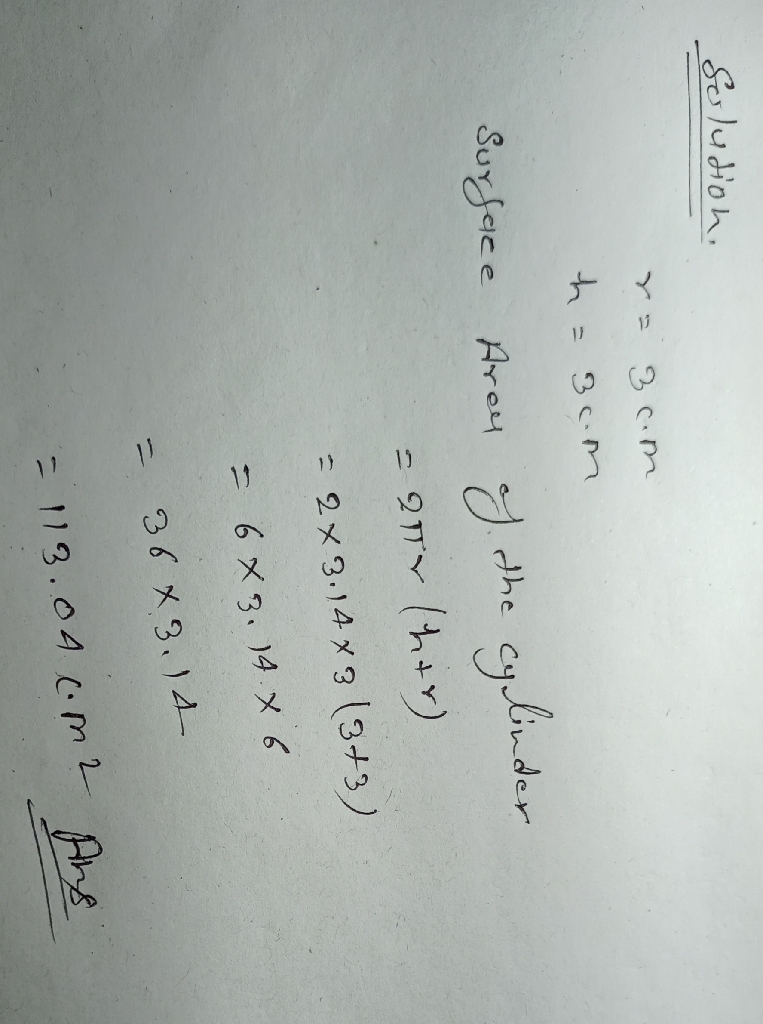 Solution.
r = 3 c.m
h = 3 c.m
Surface Area of the cylinder
= 2πr (h+r)
= 2×3.14×3 (3+3)
= 6×3.14×6
= 36×3.14
= 113.04 c.m² Ans